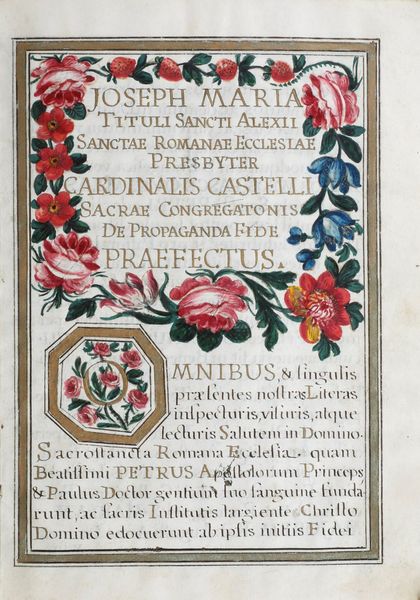 JOSEPH MARIA
TITULI SANCTI ALEXII
SANCTAE ROMANAE ECCLESIAE
PRESBYTER
CARDINALIS CASTELLI
SACRAE CONGREGATONIS
DE PROPAGANDA FIDE
PRAEFECTUS.
OMNIBUS, & singulis
præsentes nostras Literas
inspecturis, visuris, atque
lecturis Salutem in Domino.
Sacrosancta Romana Ecclesia quam
Beatissimi PETRUS Apostolorum Princeps,
& Paulus Doctor gentium suo sanguine funda-
runt, ac sacris Institutis largiente Christo
Domino edocuerunt ab ipsis initiis Fidei